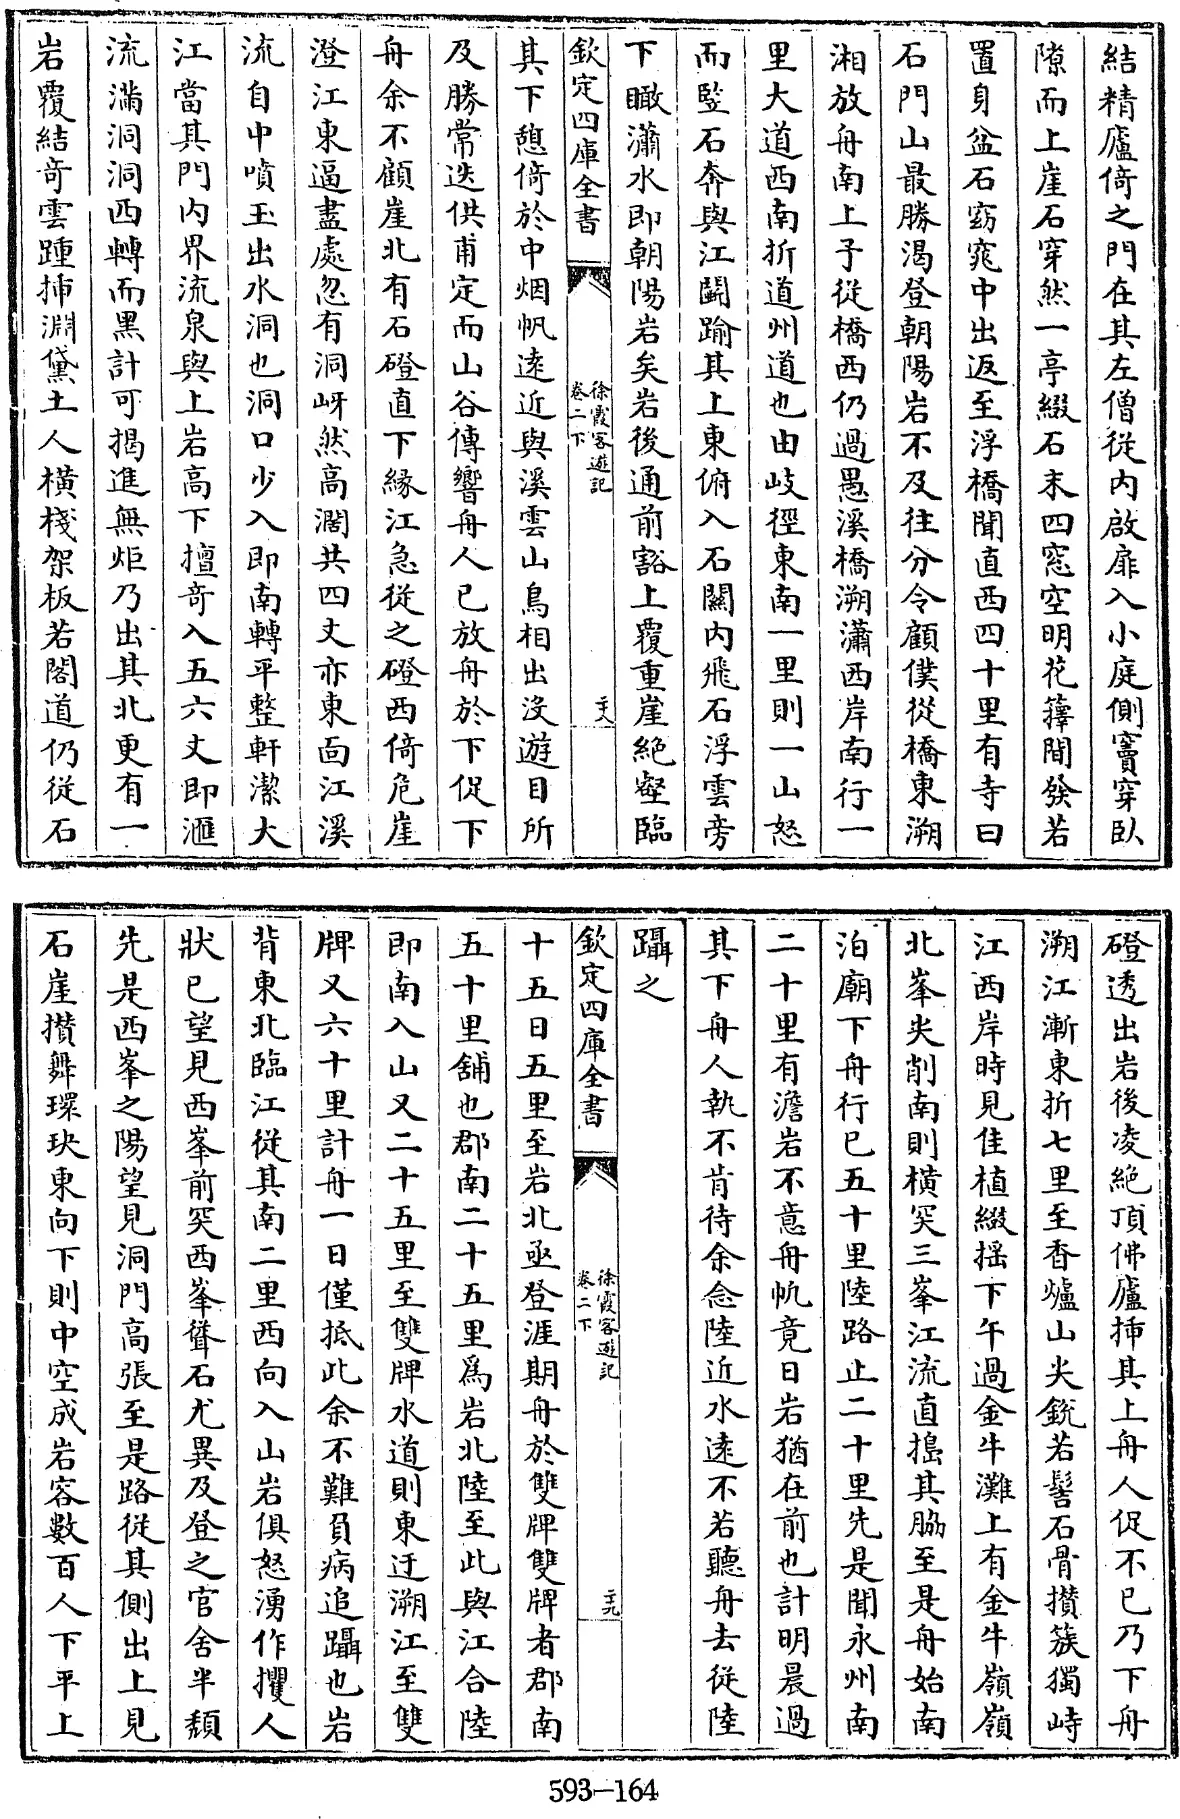 結精廬倚之門在其左僧從内啟扉入小庭側竇穿臥
隙而上崖石穿然一亭綴石末四窓空明花籜間發若
置身盆石窈窕中出返至浮橋聞直西四十里有寺曰
石門山最勝渴登朝陽岩不及往分令顧僕從橋東溯
湘放舟南上予從橋西仍過愚溪橋溯瀟西岸南行一
里大道西南折道州道也由岐徑東南一里則一山怒
而豎石奔與江鬭踰其上東俯入石關内飛石浮雲旁
下瞰瀟水即朝陽岩矣岩後通前豁上覆重崖絶壑臨
欽定四庫全書
徐霞客遊記
卷二下
二十八
其下憩倚於中烟帆逺近與溪雲山鳥相出沒遊目所
及勝常迭供甫定而山谷傳響舟人已放舟於下促下
舟余不顧崖北有石磴直下緣江急從之磴西倚危崖
澄江東逼盡處忽有洞岈然高濶共四丈亦東面江溪
流自中噴玉出水洞也洞口少入即南轉平整軒潔大
江當其門内界流泉與上岩高下擅奇入五六丈即滙
流滿洞洞西轉而黑計可揭進無炬乃出其北更有一
岩覆結奇雲踵挿淵黛土人橫棧架板若閣道仍從石
磴透出岩後凌絶頂佛廬挿其上舟人促不已乃下舟
溯江漸東折七里至香爐山尖銳若髻石骨攢簇獨峙
江西岸時見佳植綴揺下午過金牛灘上有金牛嶺嶺
北峯尖削南則橫突三峯江流直搗其脇至是舟始南
泊廟下舟行已五十里陸路止二十里先是聞永州南
二十里有澹岩不意舟㠶竟日岩猶在前也計明晨過
其下舟人執不肯待余念陸近水逺不若聽舟去從陸
躡之
欽定四庫全書
徐霞客遊記
卷二下
二十九
十五日五里至岩北亟登涯期舟於雙牌雙牌者郡南
五十里舖也郡南二十五里爲岩北陸至此與江合陸
即南入山又二十五里至雙牌水道則東迂溯江至雙
牌又六十里計舟一日僅抵此余不難負病追躡也岩
背東北臨江從其南二里西向入山岩俱怒湧作攫人
狀已望見西峯前突西峯聳石尤異及登之官舍半頹
先是西峯之陽望見洞門高張至是路從其側出上見
石崖攢舞環玦東向下則中空成岩容數百人下平上
593–164